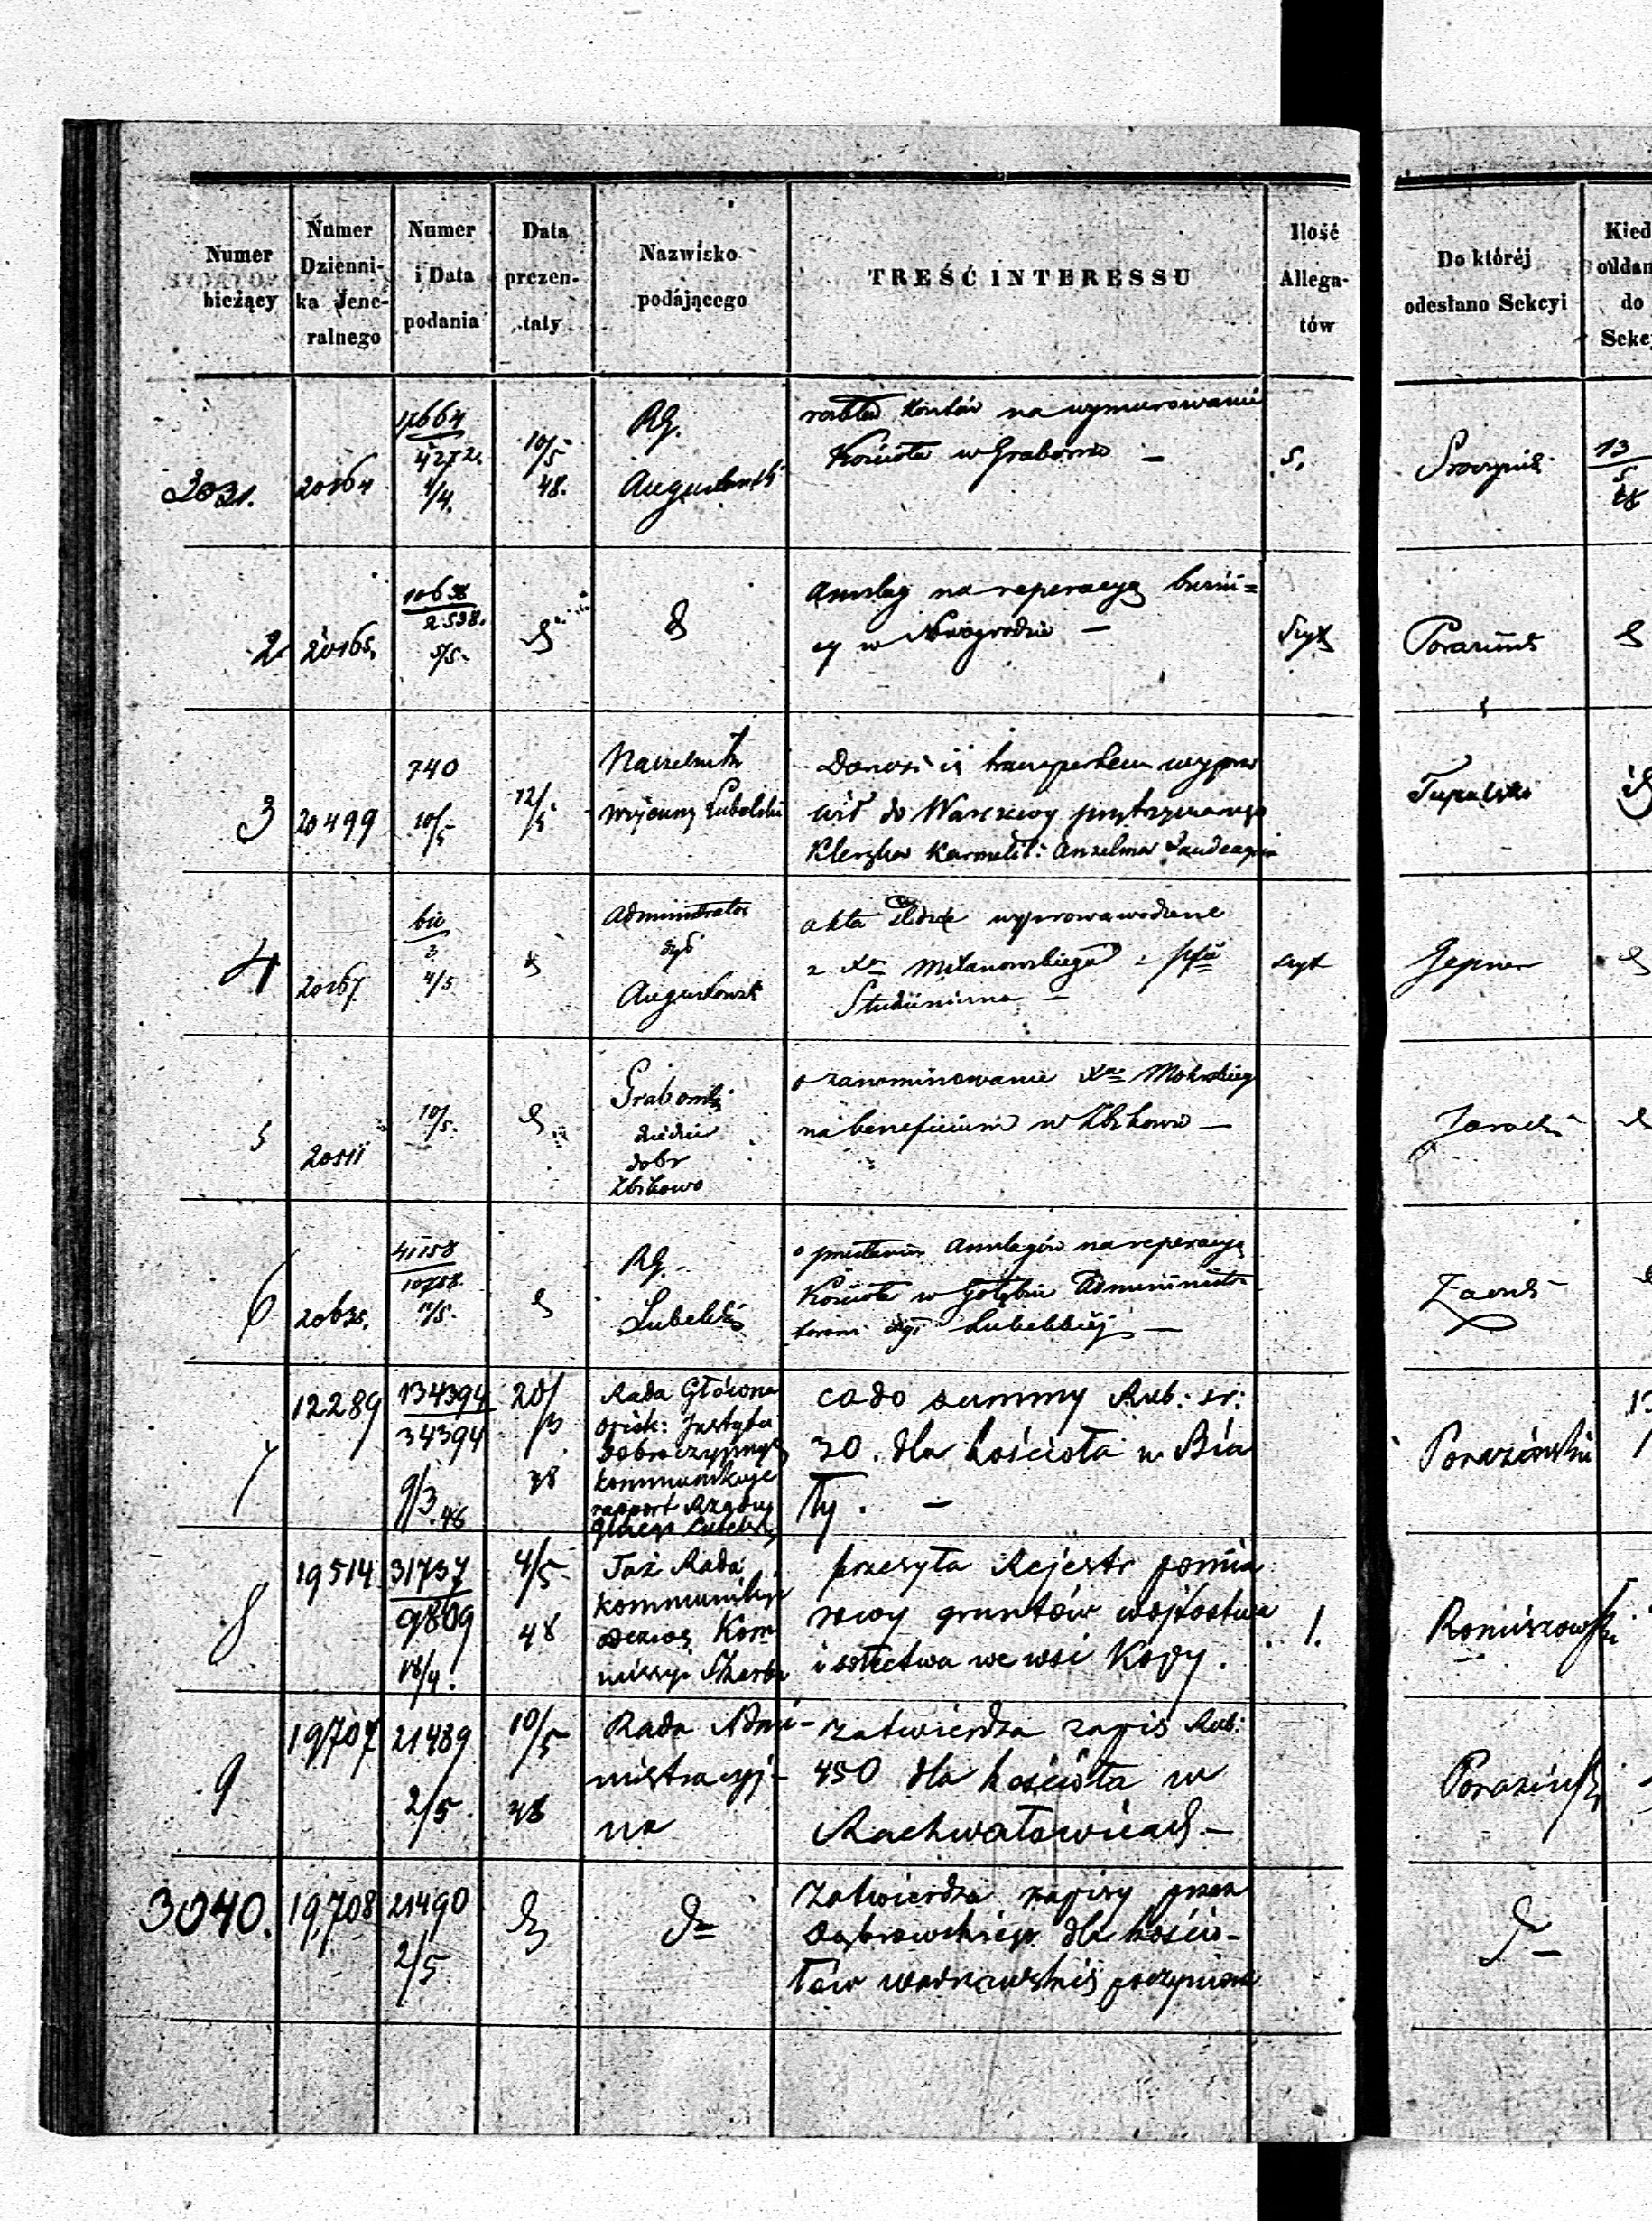 Numer bieżący
Numer Dzienni- ka Jene- ralnego
Numer i Data podania
Data prezen- taty
Nazwisko podającego
TREŚĆ INTERESSU
Ilość Allega- tów
Do któréj odesłano Sekcyi
Kied
oddan
do
Sekc
3031.
20164
17664
4272.
1/4.
10/5
48.
RG.
Augustowski
rozkład kosztów na wymurowanie
Kościoła w Grabowie —
5.
13
5
2
20165
10638
2538.
5/5
Anszlag na reperacyą
cy w Nowogrodzie —
Poraziński
3
20499
740
10/5
12/5
Naczelnik
wojenny Lubelski
Donosi iż transportem wypra
wił do Warszawy przytrzymanego
Kleryka Karmelit: Anzelma
Tupalski
4
20167
4/5
Administrator
dyć
Augustowski
akta wyprowawodzone
z Xm Milanowskiego z
Studzieniczna —
szyt
Jepner
5
20511
10/5.
Grabowski
dziedzic
dobr
Zbikowo
o zanominowanie Xa Mokrskiego
na beneficium w Zbikowie —
6
20635.
41158
10758.
11/5.
RG.
Lubelski
o przesłanie Anszlagów na reperacyą
Kościoła w Gołębiu Administra
torowi dyć Lubelskiéj —
7
12289
134394
34394
9/3.48
20/3
48
Rada Główna
Opiek: Instytu
Dobroczynnych
kommunikuje
rapport Rządu
Gbnego Lubelsk
co do summy Rub: sr:
30. dla kościoła w Bia
ły. —
Poraziński
8
19514
31737
9809
18/4.
4/5
48
Taż Rada
kommunikuje
odezwę Kom
missyi Skarbu
przesyła Rejestr pomia
rowy gruntów wójtostwa
i sołectwa we wsi Kopy.
1.
Romiszowski
9
19707
21489
2/5.
10/5
48
Rada Admi-
nistracyj-
na
zatwierdza zapis Rub:
450 dla kościoła w
Rachwałowicach —
Poraziński
3040.
19,708
21490
2/5
zatwierdza zapisy przez
Dąbrowskiego dla kościo-
łów warszawskich poczynione